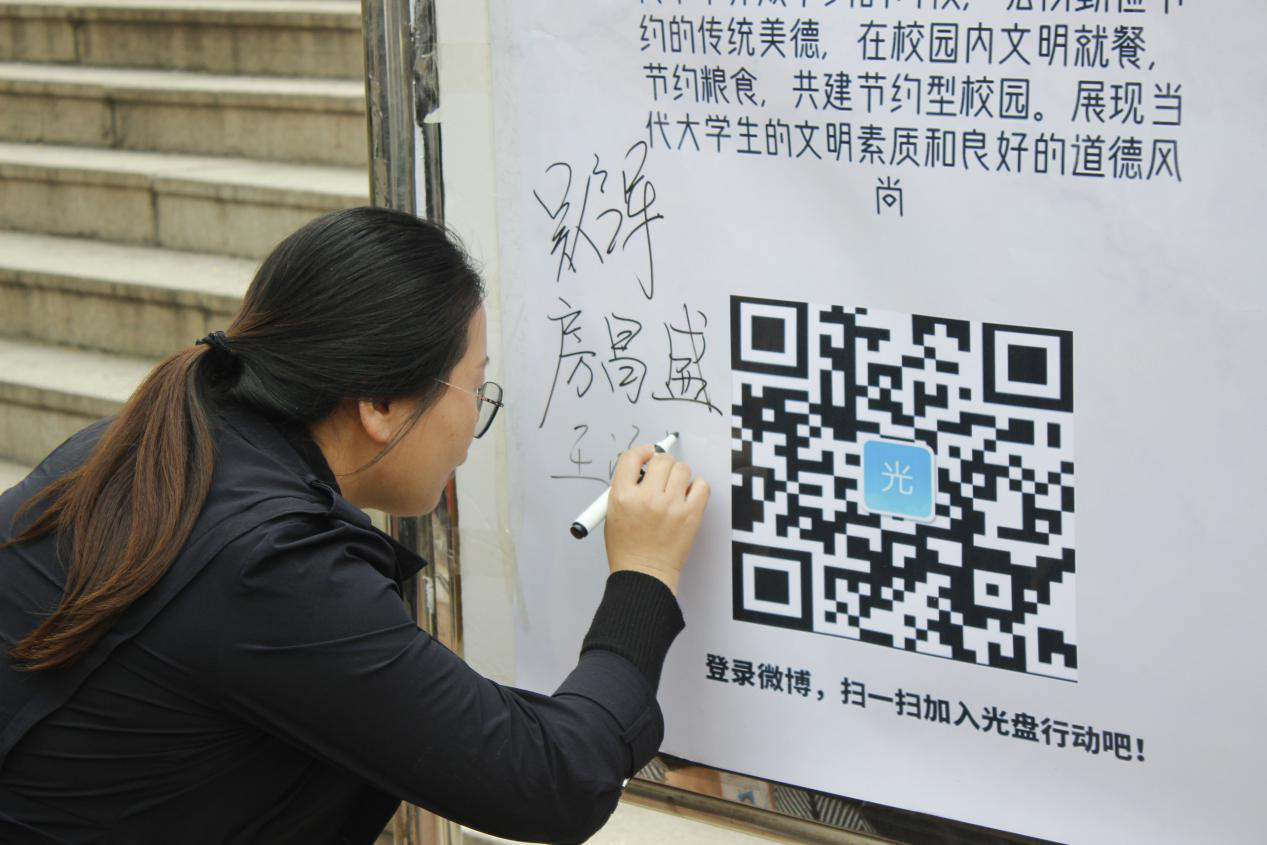 约的传统美德，在校园内文明就餐，
节约粮食，共建节约型校园。展现当
代大学生的文明素质和良好的道德风
尚
房昌盛
王
光
登录微博，扫一扫加入光盘行动吧！